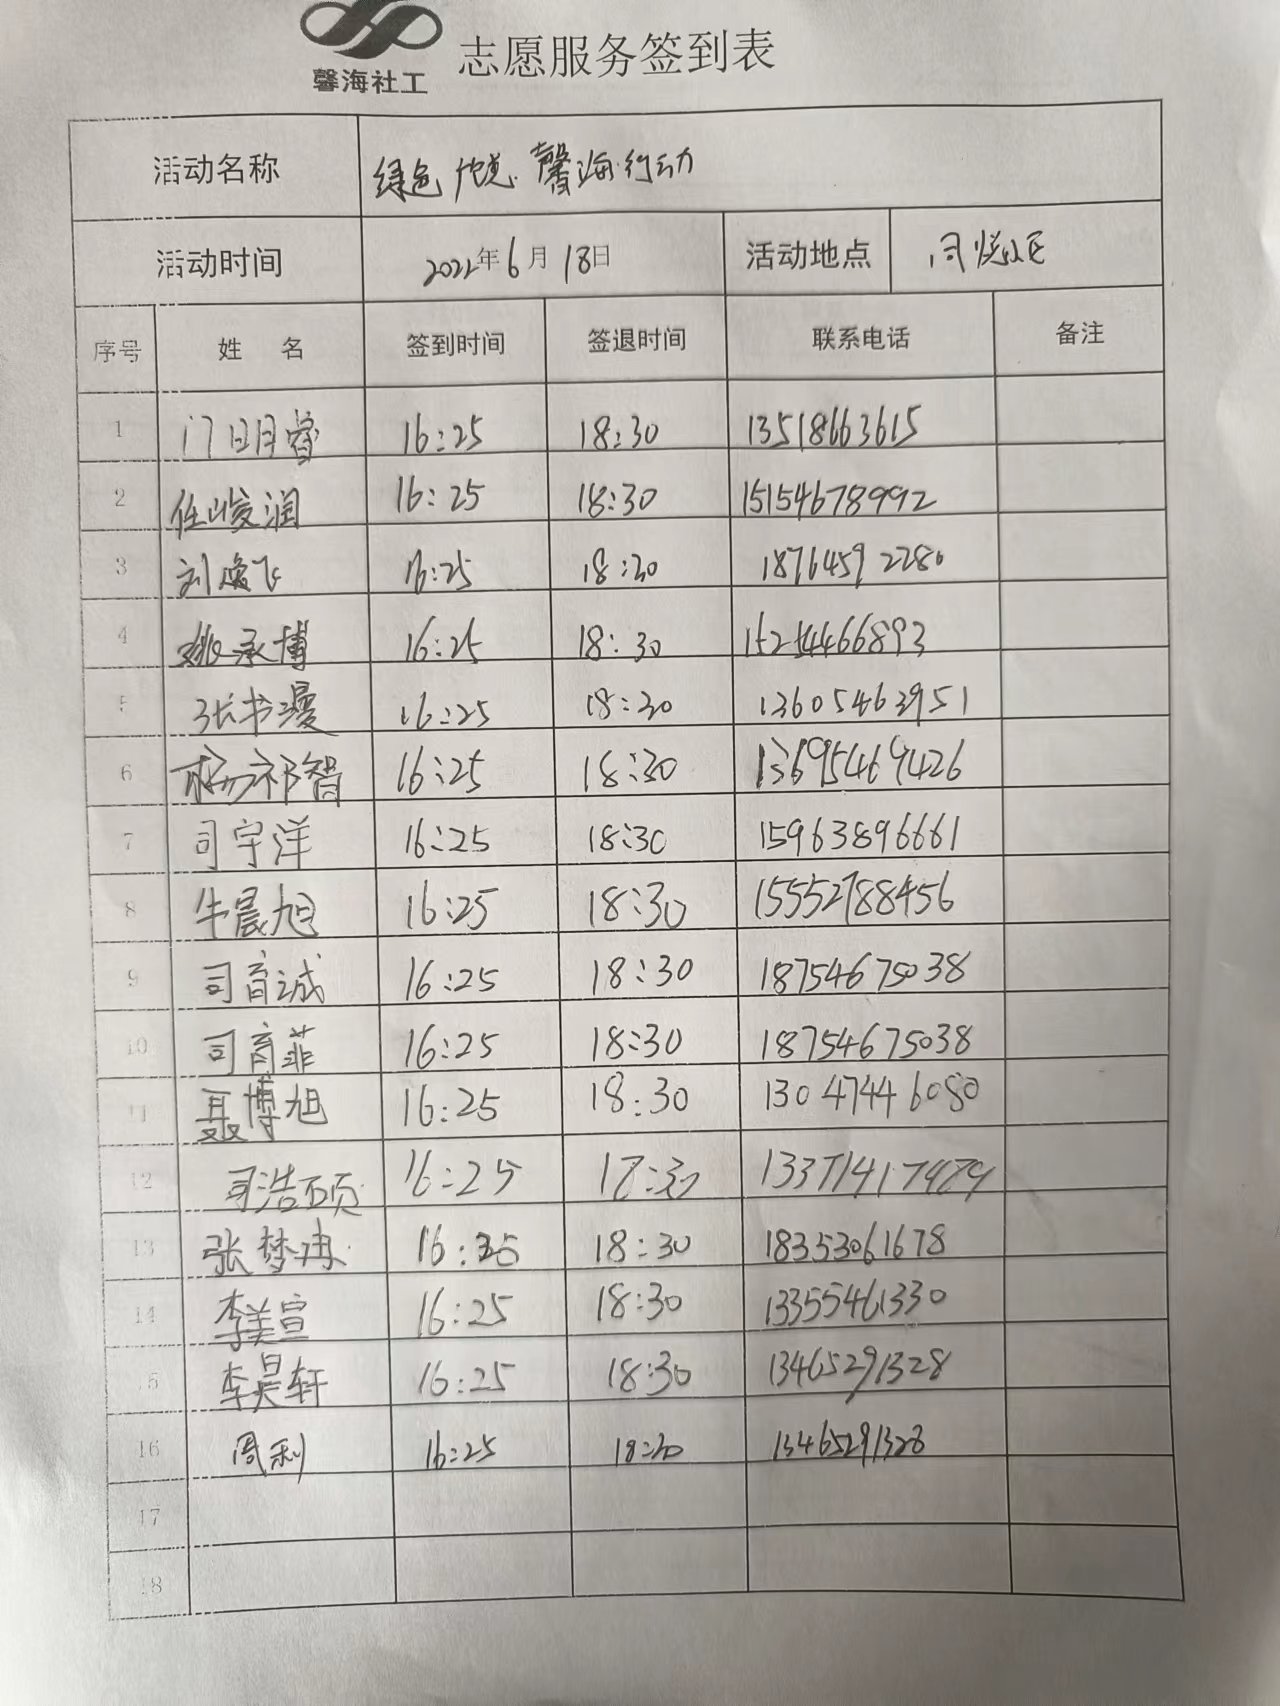 馨海社工
志愿服务签到表
活动名称 绿色 馨海行动
活动时间 2022年6月18日 活动地点 同悦小区
序号 姓 名 签到时间 签退时间 联系电话 备注
1 门明睿 16:25 18:30 13518663615
2 任峻润 16:25 18:30 15154678992
3 刘逸飞 16:25 18:30 18764592280
4 姚承博 16:25 18:30 15254466893
5 张书漫 16:25 18:30 13605463951
6 杨祁智 16:25 18:30 13695469426
7 司宇洋 16:25 18:30 15963896661
8 牛晨旭 16:25 18:30 15552788456
9 司育诚 16:25 18:30 18754675038
10 司育菲 16:25 18:30 18754675038
11 聂博旭 16:25 18:30 13047446080
12 司浩硕 16:25 18:30 13371417479
13 张梦冉 16:25 18:30 18353061678
14 李美宣 16:25 18:30 13355461330
15 李昊轩 16:25 18:30 13465291328
16 周利 16:25 18:30 13465291328
17
18